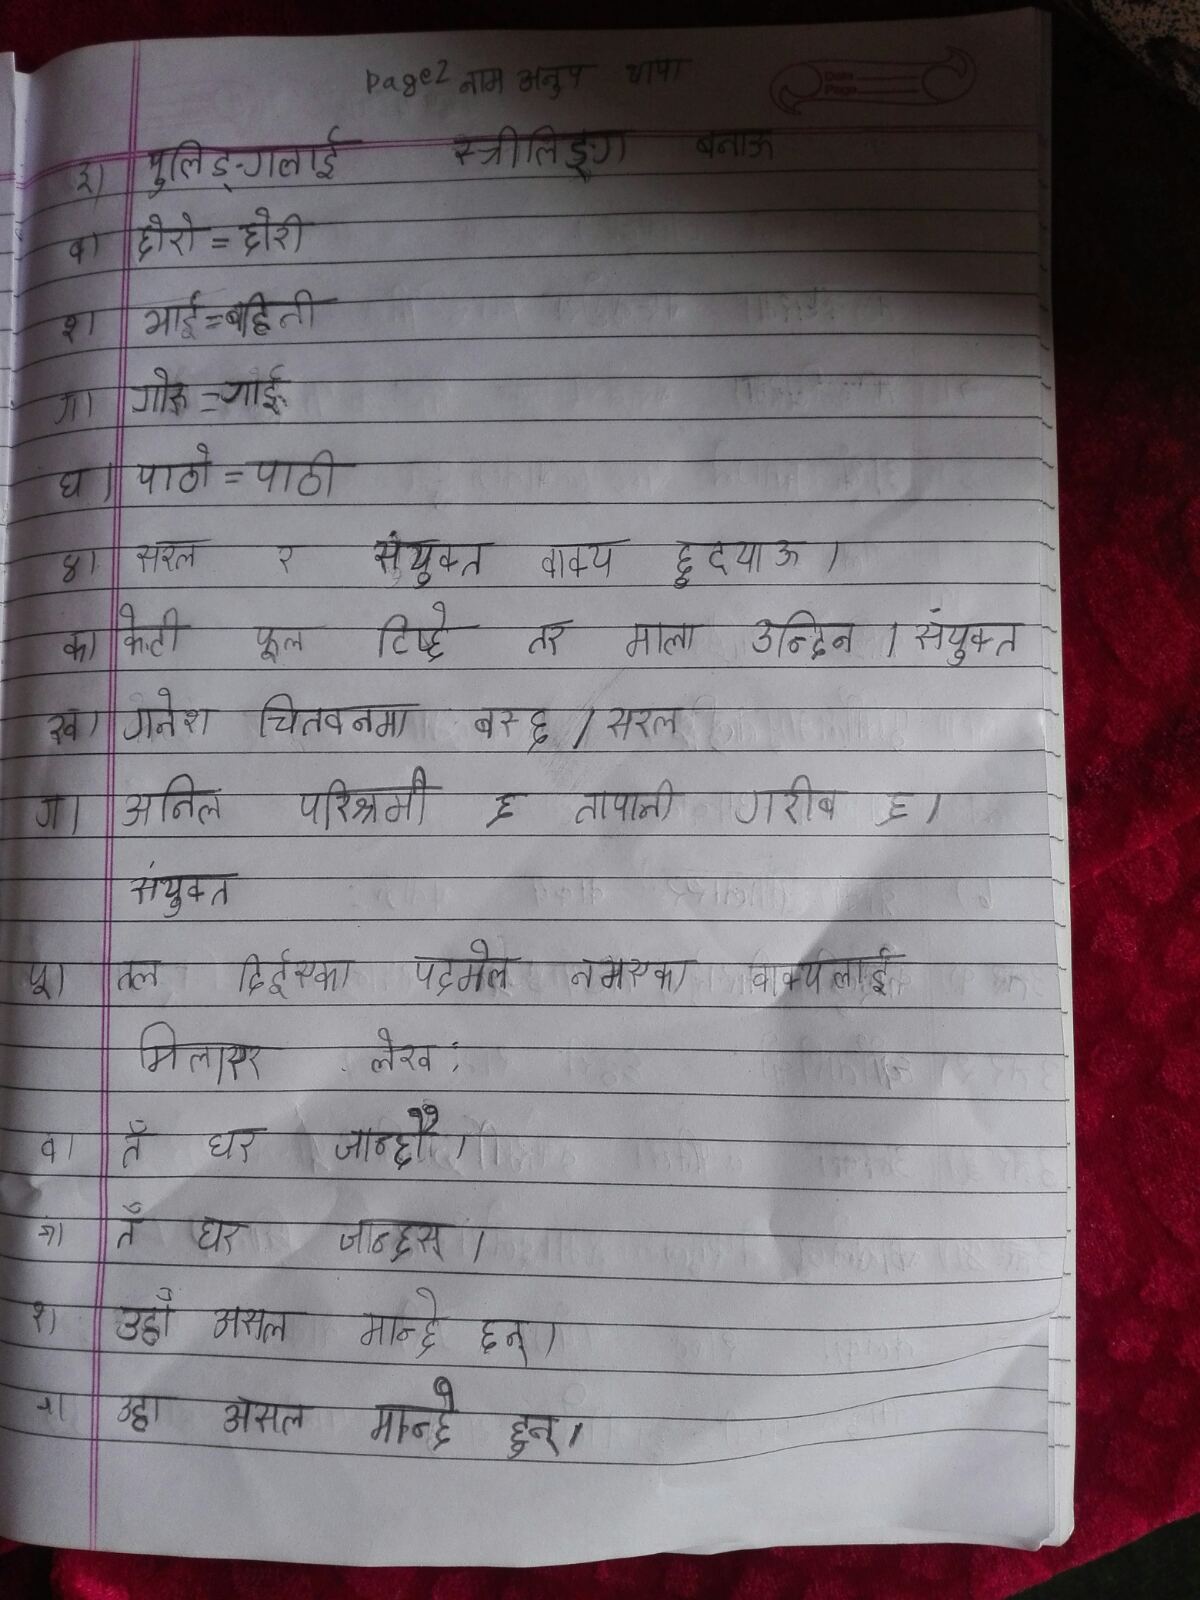 Page2 नाम अनुप थापा
३) पुलिङ्गलाई स्त्रीलिङ्ग बनाऊ
क) छोरो = छोरी
ख) भाई = बहिनी
ग) गोरू = गाई
घ) पाठो = पाठी
४) सरल र संयुक्त वाक्य छुटयाऊ ।
क) केटी फूल टिप्छे तर माला उन्दिन । संयुक्त
ख) गनेश चितवनमा बस्छ । सरल
ग) अनिल परिश्रमी छ तापानी गरीब छ ।
संयुक्त
५) तल दिईएका पदमेल नमएका वाक्यलाई
मिलाएर लेख :
क) तँ घर जान्छौ ।
तँ घर जान्छस् ।
उहाँ असल मान्छे छन् ।
उहा असल मान्छै हुन् ।